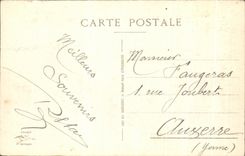 CARTE POSTALE
Meilleurs
Souvenirs
Monsieur
Faugeras
1 rue Joubert
Auxerre
(Yonne)